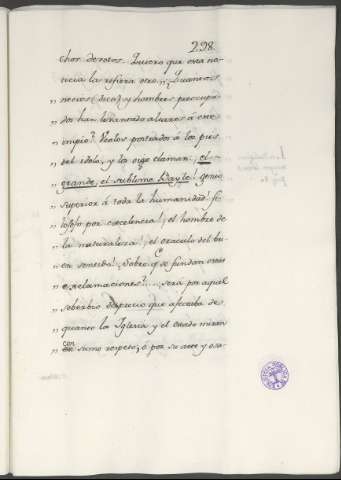 298.
chos devotos. Quiero que esta no-
ticia la refiera otro. „¿Quantos
„ necios (dice) y hombres preocupa-
„ dos han levantado altares á este
„ impio? Veolos postrados á los pies
„ del idolo, y los oigo clamar: el
„ grande, el sublime Bayle! genio
„ superior á toda la humanidad! fi-
„ lósofo por excelencia! el hombre de
„ la naturaleza! el oraculo del bu-
„ en sentido! ¿Sobre q.e se fundan estas
„ exclamaciones?.... sera por aquel
„ soberbio desprecio que afectaba de
„ quanto la Iglesia y el estado miran
„ con sumo respeto; ó por su arte y osa-